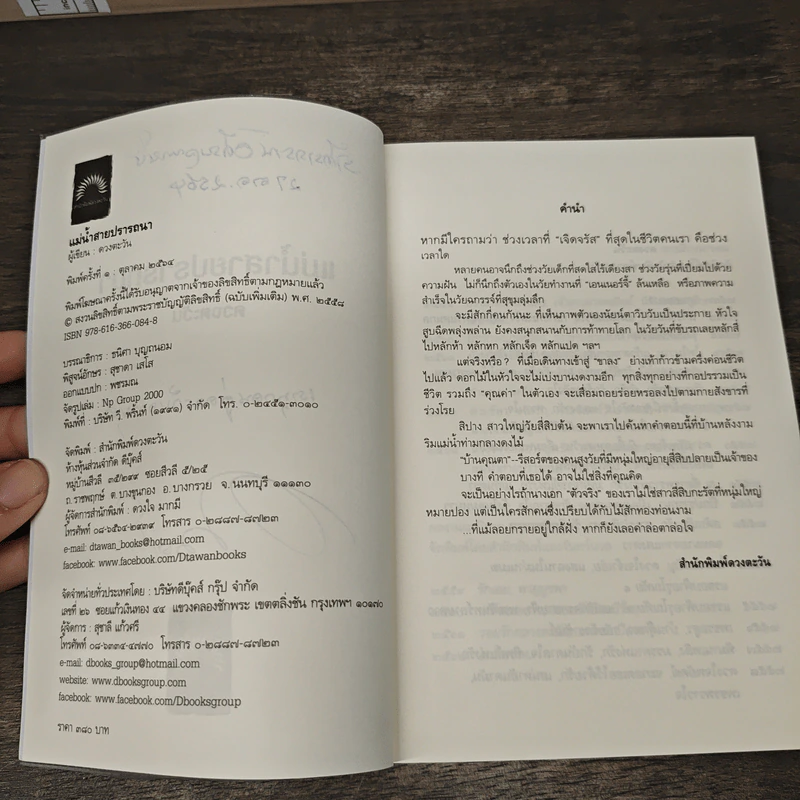 ๒๗ ต.ค. ๒๕๖๔
แม่น้ำสายปรารถนา
ผู้เขียน : ดวงตะวัน
พิมพ์ครั้งที่ ๑ : ตุลาคม ๒๕๖๔
พิมพ์โฆษณาครั้งนี้ได้รับอนุญาตจากเจ้าของลิขสิทธิ์ตามกฎหมายแล้ว
© สงวนลิขสิทธิ์ตามพระราชบัญญัติลิขสิทธิ์ (ฉบับเพิ่มเติม) พ.ศ. ๒๕๕๘
ISBN 978-616-366-084-8
บรรณาธิการ : ธนิศา บุญถนอม
พิสูจน์อักษร : สุชาดา เสโส
ออกแบบปก : พชรมณ
จัดรูปเล่ม : Np Group 2000
พิมพ์ที่ : บริษัท วี. พริ้นท์ (๑๙๙๑) จำกัด โทร. ๐-๒๔๕๑-๓๐๑๐
จัดพิมพ์ : สำนักพิมพ์ดวงตะวัน
ห้างหุ้นส่วนจำกัด ดีบุ๊คส์
หมู่บ้านสีวลี ๓๕/๒๙๙ ซอยสีวลี ๕/๒๕
ถ.ราชพฤกษ์ ต.บางขุนกอง อ.บางกรวย จ.นนทบุรี ๑๑๑๓๐
ผู้จัดการสำนักพิมพ์ : ดวงใจ มากมี
โทรศัพท์ ๐๘-๖๕๐๔-๒๙๓๙ โทรสาร ๐-๒๘๘๗-๘๗๒๓
e-mail: dtawan_books@hotmail.com
facebook: www.facebook.com/Dtawanbooks
จัดจำหน่ายทั่วประเทศโดย : บริษัทดีบุ๊คส์ กรุ๊ป จำกัด
เลขที่ ๒๖ ซอยแก้วเงินทอง ๔๔ แขวงคลองชักพระ เขตตลิ่งชัน กรุงเทพฯ ๑๐๑๗๐
ผู้จัดการ : สุชาลี แก้วศรี
โทรศัพท์ ๐๘-๖๓๓๔-๔๗๗๐ โทรสาร ๐-๒๘๘๗-๘๗๒๓
e-mail: dbooks_group@hotmail.com
website: www.dbooksgroup.com
facebook: www.facebook.com/Dbooksgroup
ราคา ๓๘๐ บาท
คำนำ
หากมีใครถามว่า ช่วงเวลาที่ "เจิดจรัส" ที่สุดในชีวิตคนเรา คือช่วง
เวลาใด
หลายคนอาจนึกถึงช่วงวัยเด็กที่สดใสไร้เดียงสา ช่วงวัยรุ่นที่เปี่ยมไปด้วย
ความฝัน ไม่ก็นึกถึงตัวเองในวัยทำงานที่ "เอนเนอร์จี้" ล้นเหลือ หรือภาพความ
สำเร็จในวัยฉกรรจ์ที่สุขุมลุ่มลึก
จะมีสักกี่คนกันนะ ที่เห็นภาพตัวเองนัยน์ตาวิบวับเป็นประกาย หัวใจ
สูบฉีดพลุ่งพล่าน ยังคงสนุกสนานกับการท้าทายโลก ในวัยวันที่ขับรถเลยหลักสี่
ไปหลักห้า หลักหก หลักเจ็ด หลักแปด ฯลฯ
แต่จริงหรือ? ที่เมื่อเดินทางเข้าสู่ "ขาลง" ย่างเท้าก้าวข้ามครึ่งค่อนชีวิต
ไปแล้ว ดอกไม้ในหัวใจจะไม่เบ่งบานงดงามอีก ทุกสิ่งทุกอย่างที่กอปรรวมเป็น
ชีวิต รวมถึง "คุณค่า" ในตัวเอง จะเสื่อมถอยร่อยหรอลงไปตามกายสังขารที่
ร่วงโรย
สิปาง สาวใหญ่วัยสี่สิบต้น จะพาเราไปค้นหาคำตอบนี้ที่บ้านหลังงาม
ริมแม่น้ำท่ามกลางดงไม้
"บ้านคุณตา"--รีสอร์ตของคนสูงวัยที่มีหนุ่มใหญ่อายุสี่สิบปลายเป็นเจ้าของ
บางที คำตอบที่เธอได้ อาจไม่ใช่สิ่งที่คุณคิด
จะเป็นอย่างไรถ้านางเอก "ตัวจริง" ของเราไม่ใช่สาวสี่สิบกะรัตที่หนุ่มใหญ่
หมายปอง แต่เป็นใครสักคนซึ่งเปรียบได้กับไม้สักทองท่อนงาม
...ที่แม้ลอยกรายอยู่ใกล้ฝั่ง หากก็ยังเลอค่าล่อตาล่อใจ
สำนักพิมพ์ดวงตะวัน